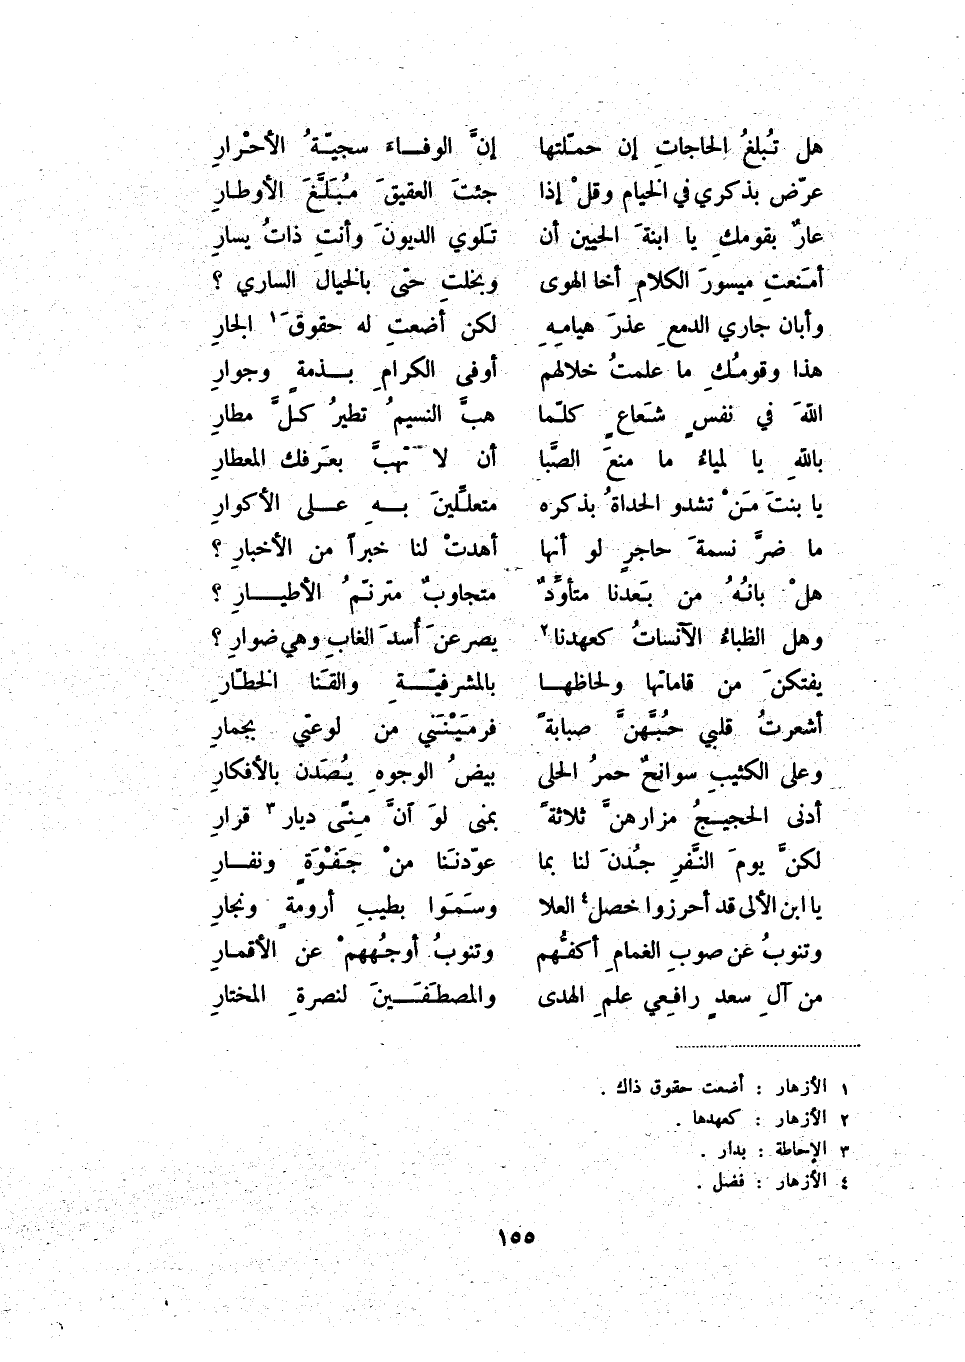 هل تُبلغُ الحاجاتِ إن حمّلتها إنَّ الوفاءَ سجيّةُ الأحْرارِ
عرّض بذكري في الخيام وقلْ إذا جئتَ العقيقَ مُبَلَّغَ الأوطارِ
عارٌ بقومكِ يا ابنةَ الحيين أن تلوي الديونَ وأنتِ ذاتُ يسارِ
أمَنعتِ ميسورَ الكلامِ أخا الهوى وبخلتِ حتّى بالخيال الساري ؟
وأبان جاري الدمعِ عذرَ هيامِهِ لكن أضعتِ له حقوقَ١ الجارِ
هذا وقومُكِ ما علمتُ خلالهم أوفى الكرامِ بذمةٍ وجوارِ
اللّهَ في نفسٍ شَعاعٍ كلّما هبَّ النسيمُ تطيرُ كلَّ مطارِ
باللّهِ يا لمياءُ ما منعَ الصَّبا أن لا تهبَّ بعَرفك المعطارِ
يا بنتَ مَنْ تشدو الحداةُ بذكره متعلّلينَ بهِ على الأكوارِ
ما ضرَّ نسمةَ حاجرٍ لو أنها أهدتْ لنا خبراً من الأخبارِ ؟
هلْ بانُهُ من بَعدنا متأوِّدٌ متجاوبٌ مترنّمُ الأطيارِ ؟
وهل الظباءُ الآنساتُ كعهدنا٢ يصرعنَ أُسدَ الغابِ وهي ضوارِ ؟
يفتكنَ من قاماتها ولحاظها بالمشرفيّةِ والقَنا الخطّارِ
أشعرتُ قلبي حُبَّهنَّ صبابةً فرمَيْنَني من لوعتي بجمارِ
وعلى الكثيبِ سوانحٌ حمرُ الحلى بيضُ الوجوهِ يُصَدن بالأفكارِ
أدنى الحجيجُ مزارهنَّ ثلاثةً بمنى لوَ آنَّ مِنىً ديار٣ قرارِ
لكنَّ يومَ النَّفرِ جُدنَ لنا بما عوّدننَا منْ جَفْوَةٍ ونفارِ
يا ابن الألى قد أحرزوا خصل٤ العلا وسَمَوا بطيبِ أرومةٍ ونجارِ
وتنوبُ عن صوبِ الغمامِ أكفُّهم وتنوبُ أوجُههمْ عن الأقمارِ
من آلِ سعدٍ رافِعي علمِ الهدى والمصطَفَينَ لنصرةِ المختارِ
١ الأزهار : أضعت حقوق ذاك .
٢ الأزهار : كعهدها .
٣ الإحاطة : بدار .
٤ الأزهار : فضل .
١٥٥